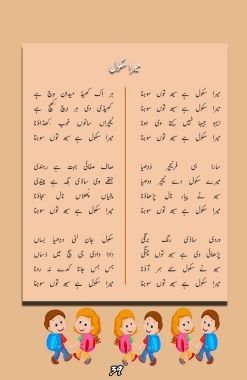 میرا سکول
میرا سکول ہے سبھ توں سوہنا
میرا سکول ہے سبھ توں سوہنا
ایہو جیہا نہیں کتے وی ہونا
میرا سکول ہے سبھ توں سوہنا
سارا ہی فرنیچر ودھیا
میرے سکول دے ٹیچر ودھیا
سبھ نے پیار نال پڑھاؤنا
میرا سکول ہے سبھ توں سوہنا
وردی ساڈی رنگ برنگی
پڑھائی وی ہے سبھ توں چنگی
سبھ نے سکول سے ہر آؤنا
میرا سکول ہے سبھ توں سوہنا
ہر اک کھیڈ میدان وچ ہے
کھیڈی دی ہر وچ کھچ ہے
ٹیچراں سانوں خوب کھڈاؤنا
میرا سکول ہے سبھ توں سوہنا
صاف صفائی بہت ہے رہندی
جتھے وی ساڈی جگہ ہے بیہندی
پھلاں نال سجاؤنا
میرا سکول ہے سبھ توں سوہنا
سکول جان لئی ودھیا بساں
دادا دادی جی سچ میں دساں
بس بس جانا کدے نہ رونا
میرا سکول ہے سبھ توں سوہنا
39